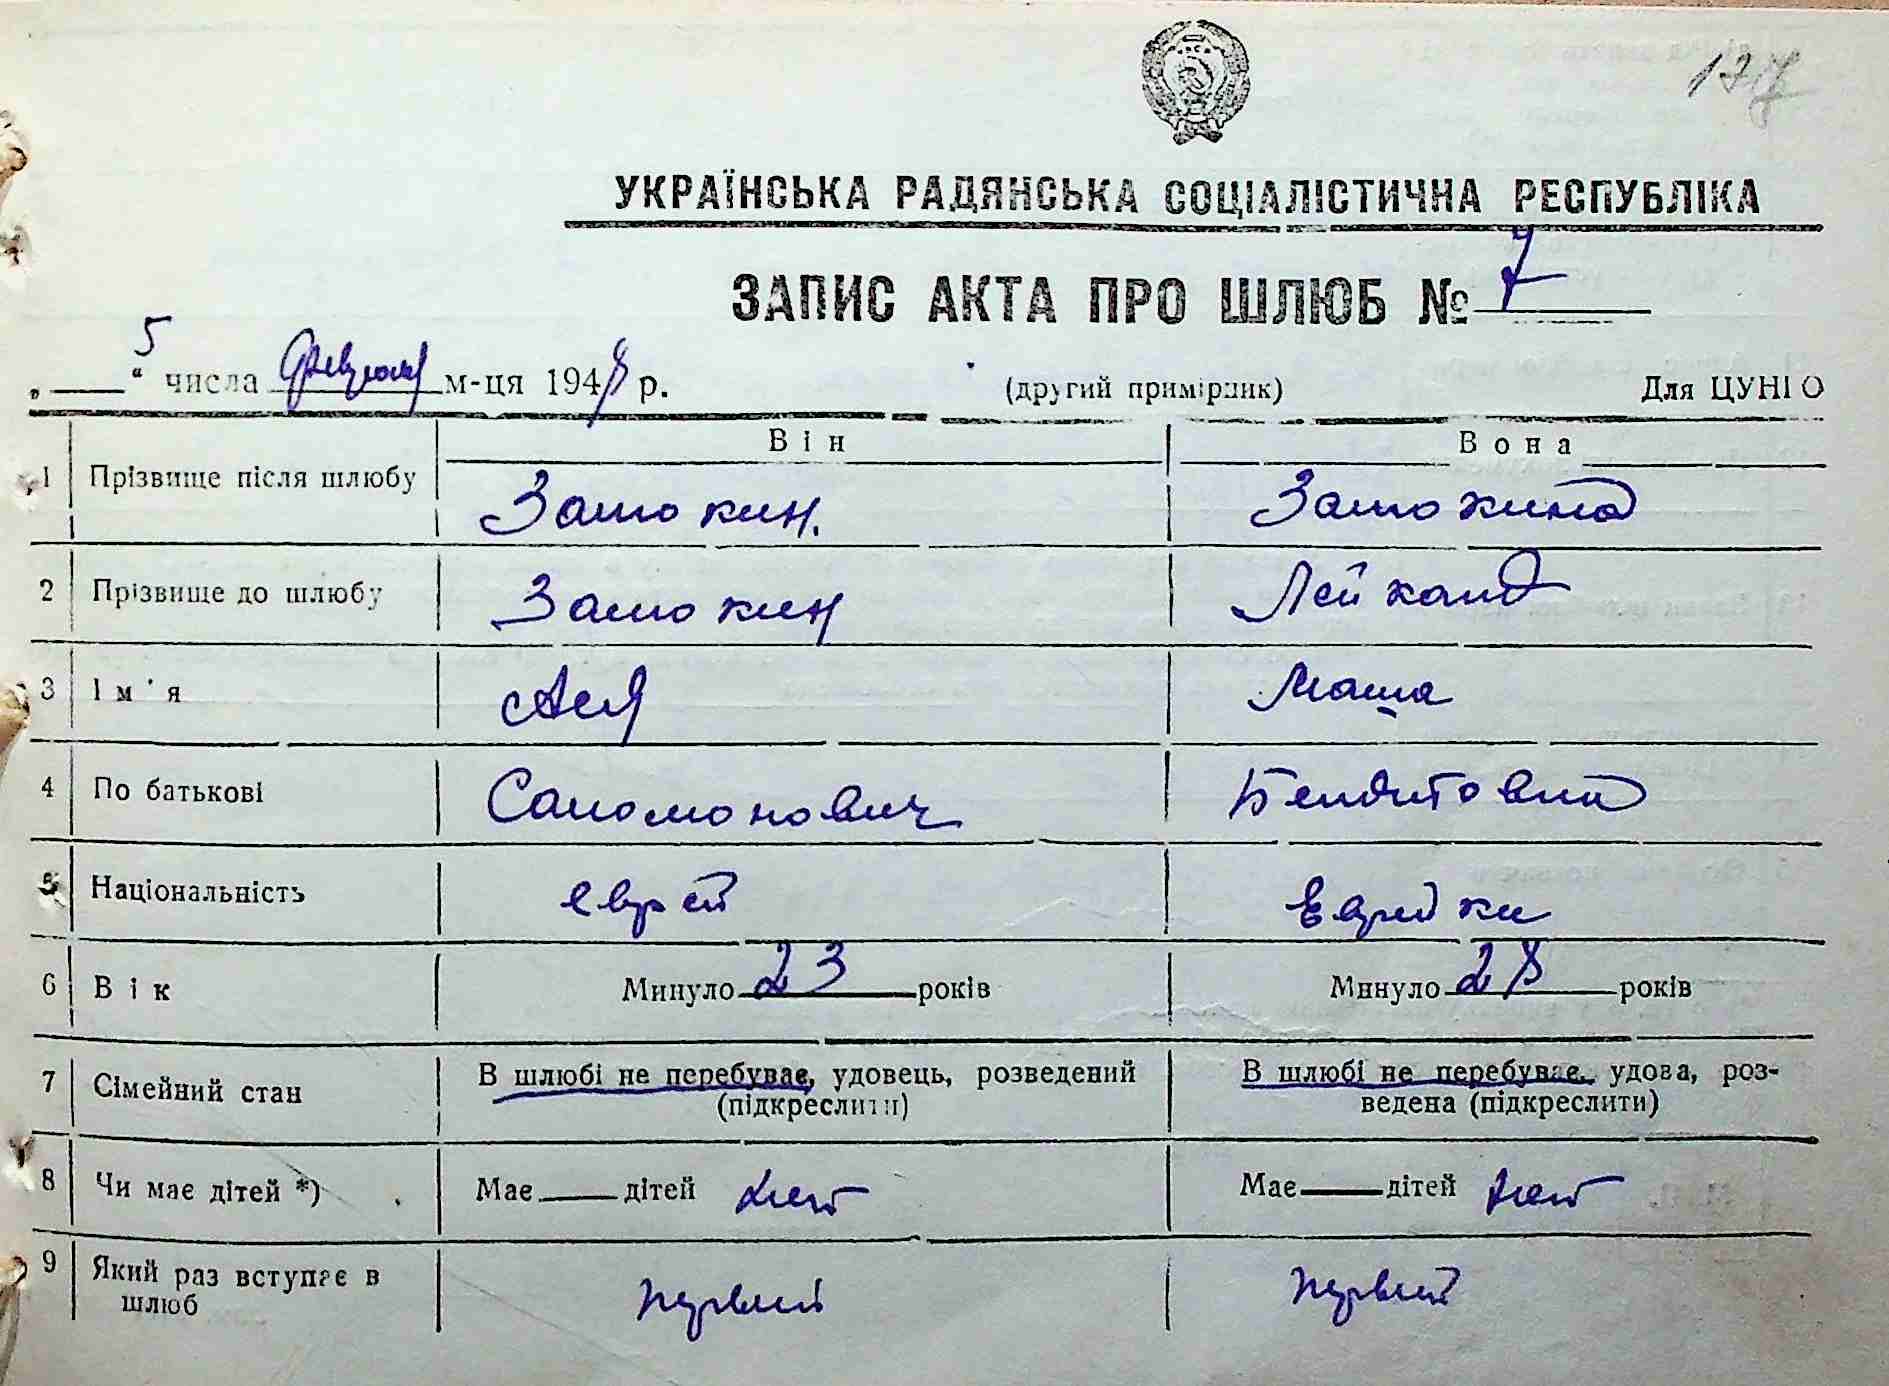 177
УКРАЇНСЬКА РАДЯНСЬКА СОЦІАЛІСТИЧНА РЕСПУБЛІКА
ЗАПИС АКТА ПРО ШЛЮБ № 7
„ 5 “ числа февраля м-ця 1948 р. (другий примірник) Для ЦУНГО
Він Вона
1 Прізвище після шлюбу Затокин. Затокина
2 Прізвище до шлюбу Затокин
3 Ім'я Ася Маша
4 По батькові Соломонович
5 Національність еврей Еврейка
6 Вік Минуло 23 років Минуло 28 років
7 Сімейний стан В шлюбі не перебуває, удовець, розведений В шлюбі не перебуває, удова, роз-
(підкреслити) ведена (підкреслити)
8 Чи має дітей *) Має дітей нет Має дітей нет
9 Який раз вступає в первый первый
шлюб